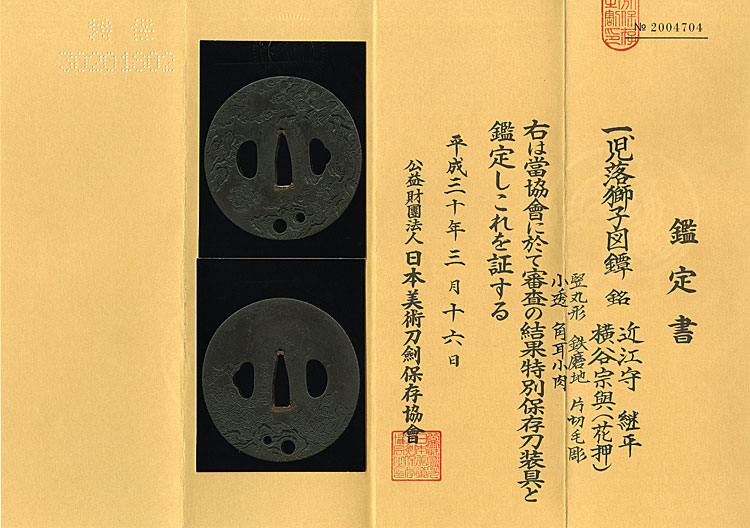 № 2004704
鑑定書
一、児落獅子図鐔 銘 近江守 継平
横谷宗與(花押)
竪丸形 鉄磨地 片切毛彫
小透 角耳小肉
右は當協會に於て審査の結果特別保存刀装具と
鑑定しこれを証する
平成三十年三月十六日
公益財團法人 日本美術刀劍保存協會
特保
30201802